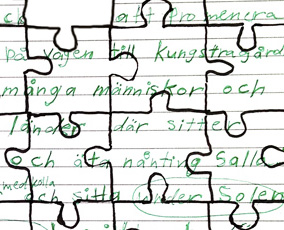 och att promenera
på vägen till Kungsträgård
många människor och
länder där sitter
och äta nånting Salla
med kolla
och sitta under Solen